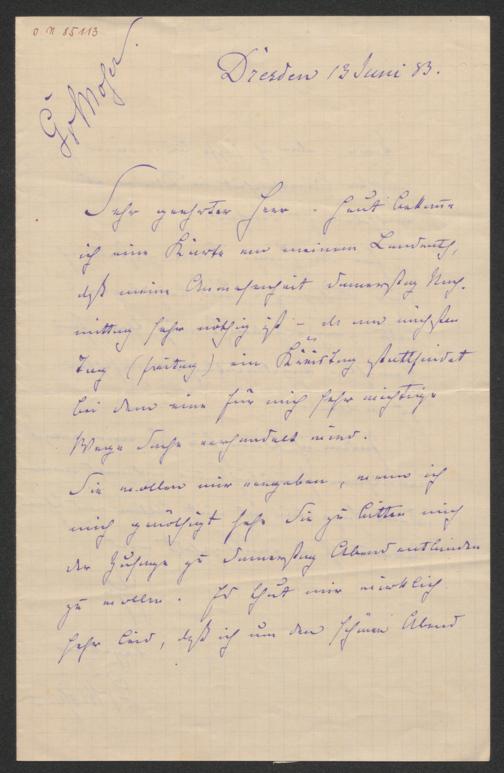 O N 85113
GvMoser.
Dresden 13 Juni 83.
Sehr geehrter Herr. Heut bekomme
ich eine Karte von meinem Landrath,
daß meine Anwesenheit Donnerstag Nach-
mittag sehr nöthig ist – da am nächsten
Tag (Freitag) ein Kreistag stattfindet
bei dem eine für mich sehr wichtige
Wege Sache verhandelt wird.
Sie wollen mir vergeben, wenn ich
mich genöthigt sehe Sie zu bitten mich
der Zusage zu Donnerstag Abend entbinden
zu wollen. Es thut mir wirklich
sehr leid, daß ich um den schönen Abend